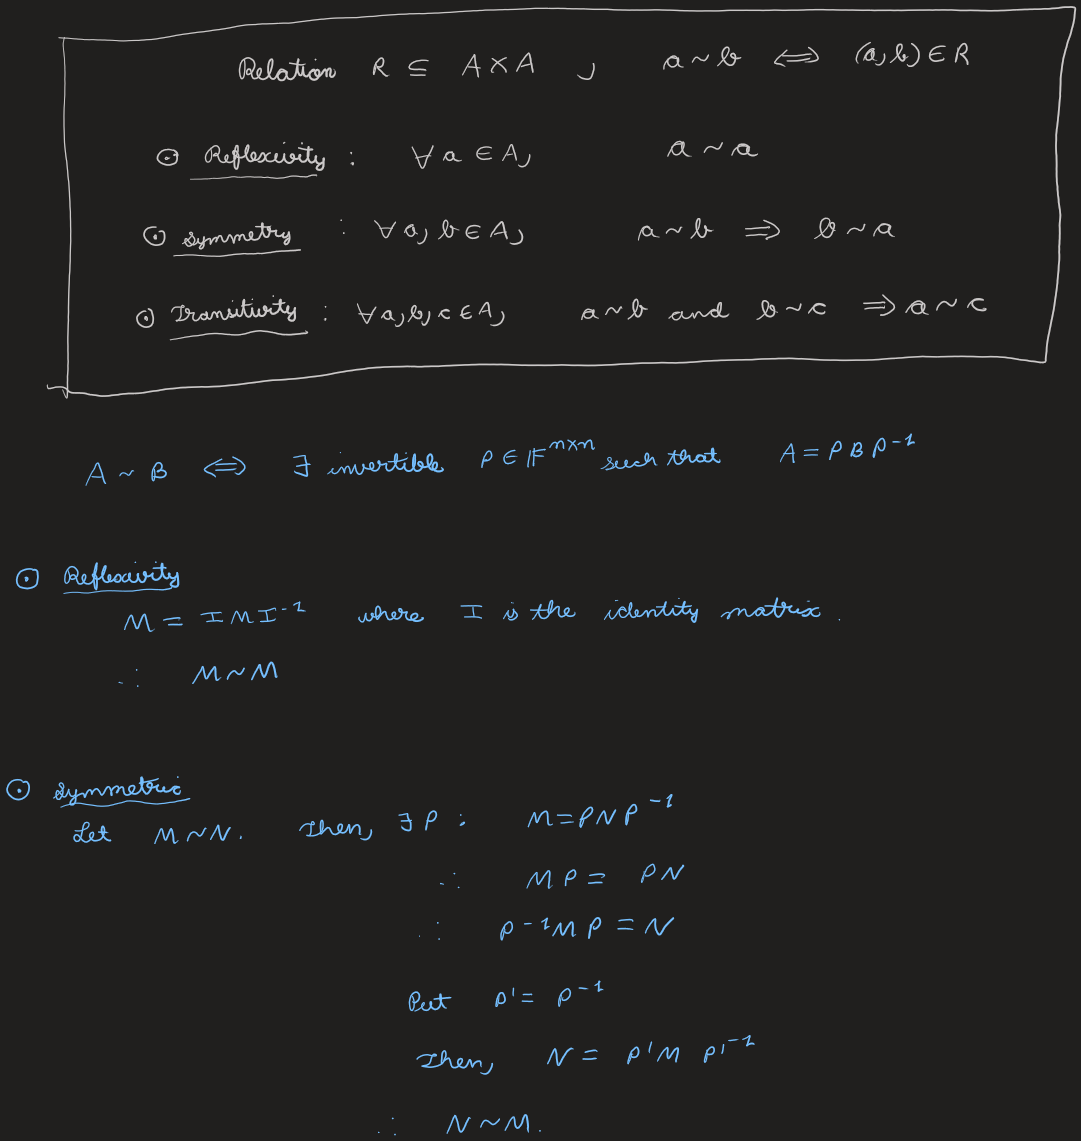 Relation R ⊆ A×A , a ~ b ⟺ (a,b) ∈ R
⊙ Reflexivity : ∀ a ∈ A, a ~ a
⊙ Symmetry : ∀ a, b ∈ A, a ~ b ⟹ b ~ a
⊙ Transitivity : ∀ a, b, c ∈ A, a ~ b and b ~ c ⟹ a ~ c
A ~ B ⟺ ∃ invertible P ∈ 𝔽^{n×n} such that A = P B P^{-1}
⊙ Reflexivity
M = I M I^{-1} where I is the identity matrix.
∴ M ~ M
⊙ Symmetric
Let M ~ N. Then, ∃ P : M = P N P^{-1}
∴ M P = P N
∴ P^{-1} M P = N
Put P' = P^{-1}
Then, N = P' M P'^{-1}
∴ N ~ M.